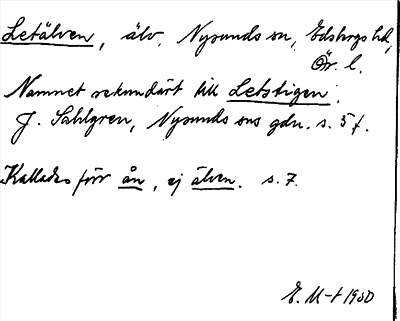 Letälven, älv, Nysunds sn, Edsbergs hd,
Ör. l.
Namnet sekundärt till Letstigen.
J. Sahlgren, Nysunds sns gdn. s. 5 f.
Kallades förr ån, ej älven. s. 7.
E. M-t 1930